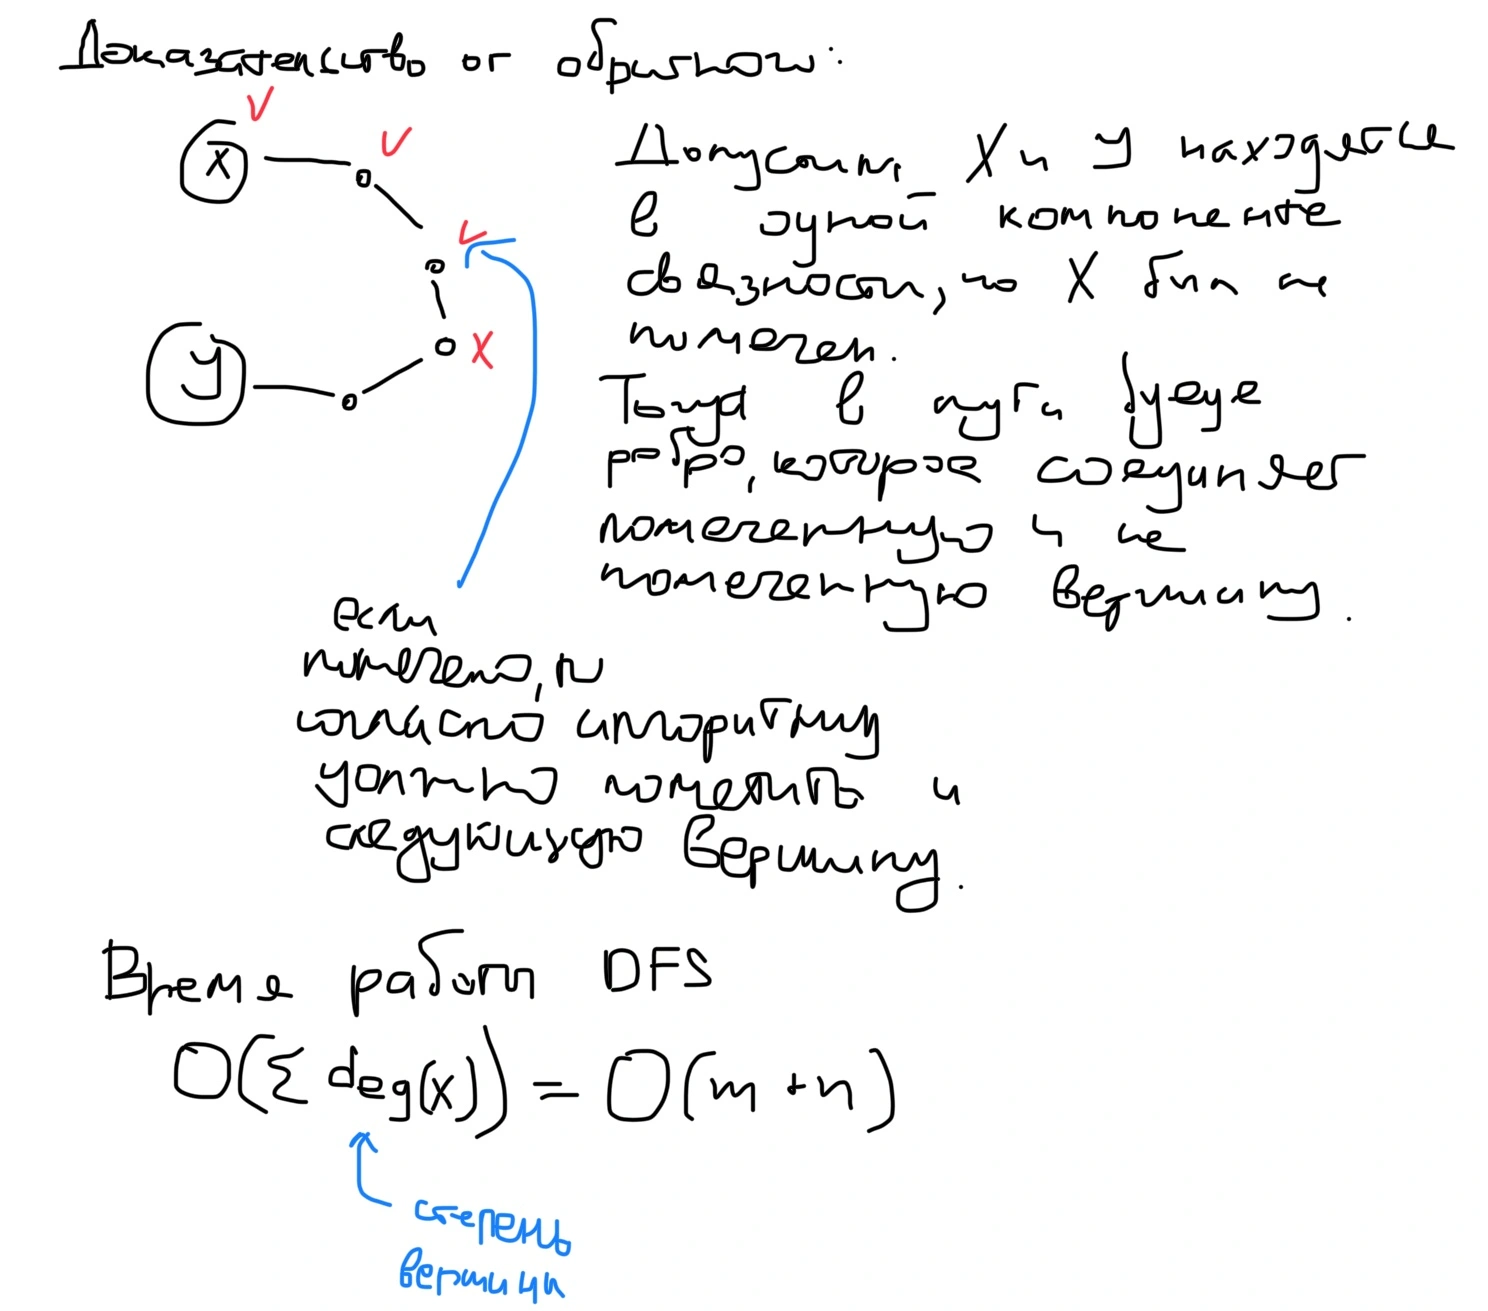 Доказательство от обратного:
V
V
X
V
X
У
Допустим, X и У находятся
в одной компоненте
связности, но X был не
помечен.
Тогда в пути будет
ребро, которое соединяет
помеченную и не
помеченную вершину.
если
помечено, то
согласно алгоритму
должно пометить и
следующую вершину.
Время работы DFS
O(Σ deg(x)) = O(m + n)
степень
вершины